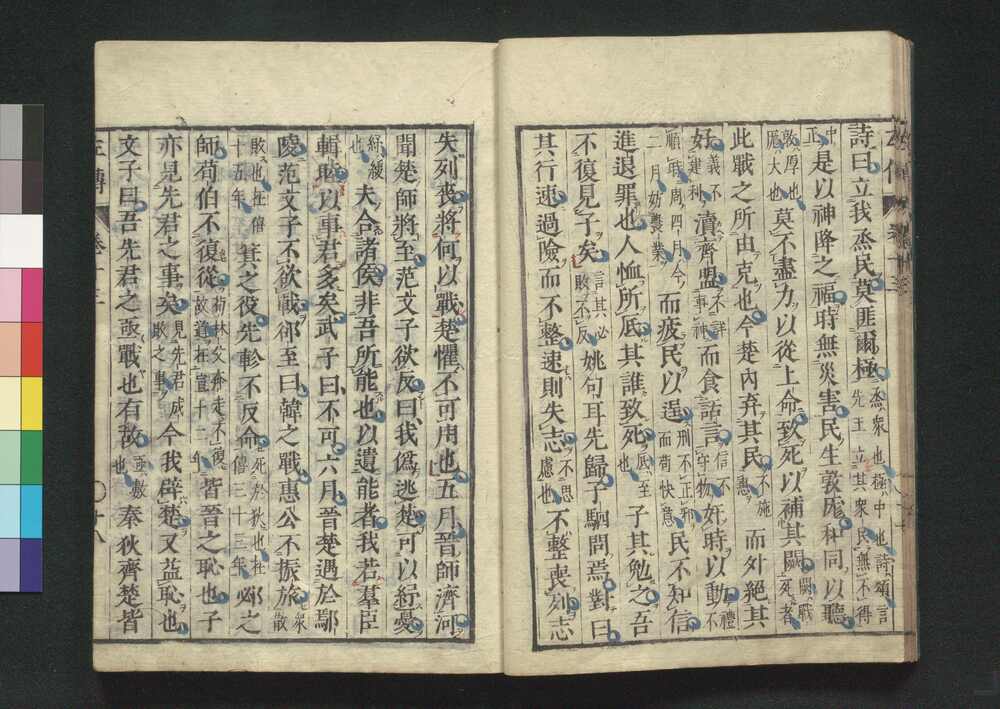 詩曰立我烝民莫匪爾極烝衆也極中也詩頌言先王立其衆民無不得
中正是以神降之福時無災害民生敦厖和同以聽
敦厚也厖大也莫不盡力以從上命致死以補其闕闕戰死者
此戰之所由克也今楚內弃其民不施惠而外絕其
好義不建利瀆齊盟不詳事神而食話言信不守物奸時以動不禮
順時周四月今二月妨農業而疲民以逞刑不正邪而苟快意民不知信
進退罪也人恤所底其誰致死底至也子其勉之吾
不復見子矣言其必敗不反姚句耳先歸子駟問焉對曰
其行速過險而不整速則失志不思慮也不整喪列志
失列喪將何以戰楚懼不可用也五月晉師濟河
聞楚師將至范文子欲反曰我偽逃楚可以紓憂
紓緩也夫合諸侯非吾所能也以遺能者我若羣臣
輯睦以事君多矣武子曰不可六月晉楚遇於鄢
陵范文子不欲戰郤至曰韓之戰惠公不振旅衆散
敗也在僖十五年箕之役先軫不反命死於狄也在僖三十三年邲之
師荀伯不復從荀林父奔走不復故道在宣十二年皆晉之恥也子
亦見先君之事矣見先君成敗之事今我辟楚又益恥也
文子曰吾先君之亟戰也有故亟數也秦狄齊楚皆
左傳 卷十三 ○十八